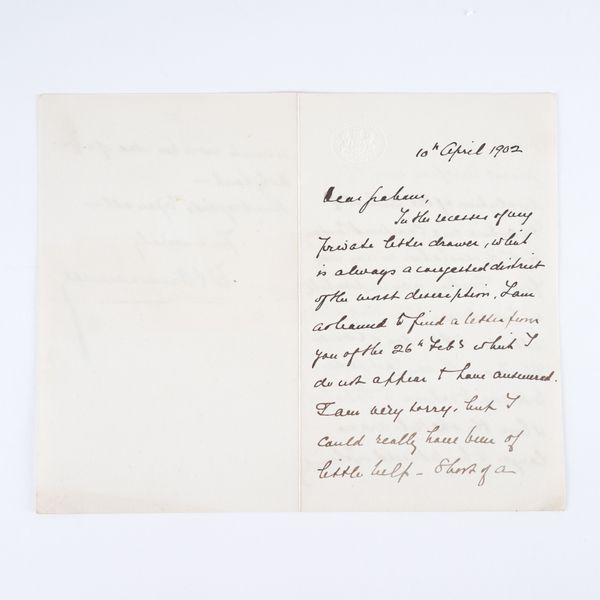 10th April 1902
Dear Graham,
In the recesses of my
private letter drawer, which
is always a congested district
of the worst description, I am
ashamed to find a letter from
you of the 26th Feby which I
do not appear to have answered.
I am very sorry, but I
could really have been of
little help – Short of a